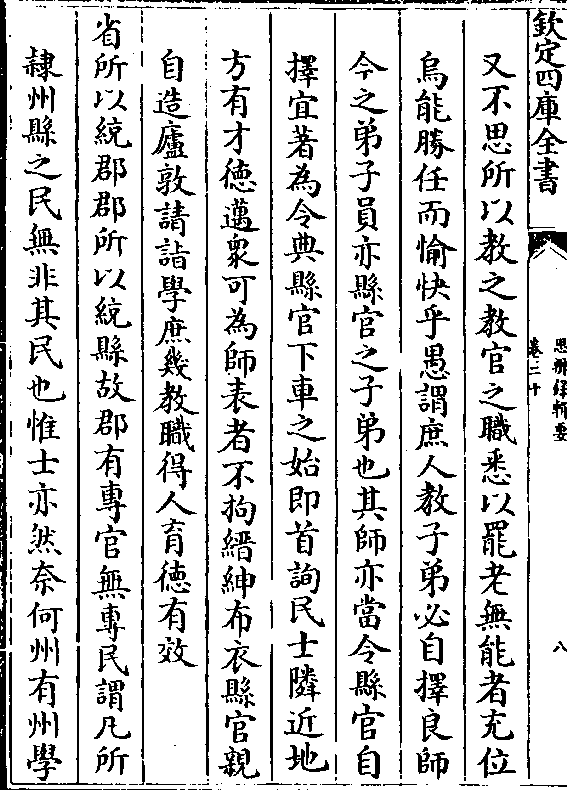 欽定四庫全書
思辨錄輯要
卷二十
八
又不思所以教之教官之職悉以罷老無能者充位
烏能勝任而愉快乎愚謂庶人教子弟必自擇良師
今之弟子員亦縣官之子弟也其師亦當令縣官自
擇宜著為令典縣官下車之始即首詢民士隣近地
方有才德邁衆可為師表者不拘縉紳布衣縣官親
自造廬敦請詣學庶幾教職得人育德有效
省所以統郡郡所以統縣故郡有專官無專民謂凡所
隸州縣之民無非其民也惟士亦然奈何州有州學